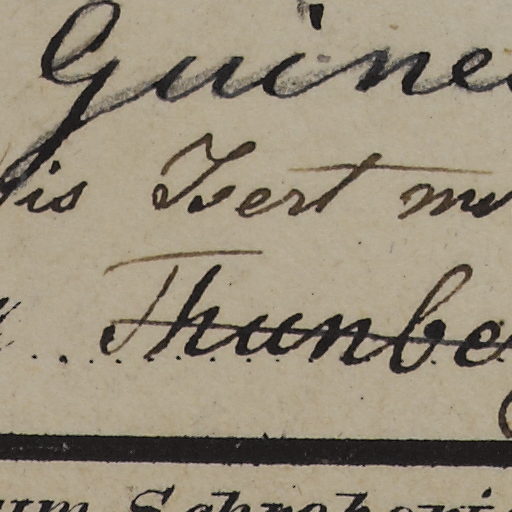 Guinea
is Isert m
Thunbe
um Schreberi